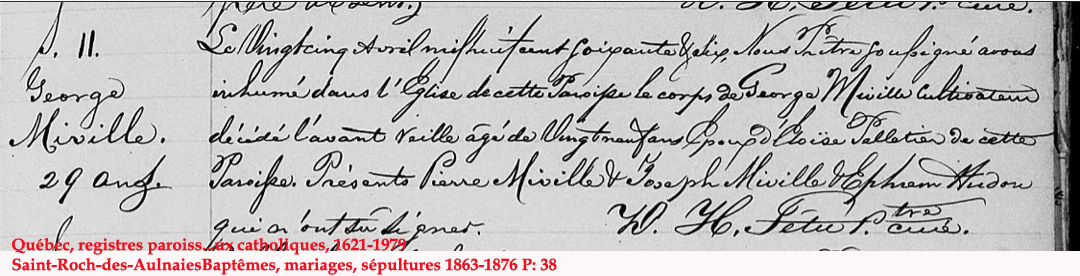 D. H. Têtu Ptre curé.
S. 11.
George
Miville.
29 ans.
Le Vingtcinq Avril mil huit cent soixante & dix, Nous Prêtre soussigné avons
inhumé dans l'Eglise de cette Paroisse le corps de George Miville Cultivateur
décédé l'avant veille âgé de Vingtneuf ans Epoux d'Eloïse Pelletier de cette
Paroisse. Présents Pierre Miville & Joseph Miville & Ephrem Hudon
qui n'ont su signer. D. H. Têtu Ptre curé.
Québec, registres paroiss..ux catholiques, 1621-1979
Saint-Roch-des-AulnaiesBaptêmes, mariages, sépultures 1863-1876 P: 38